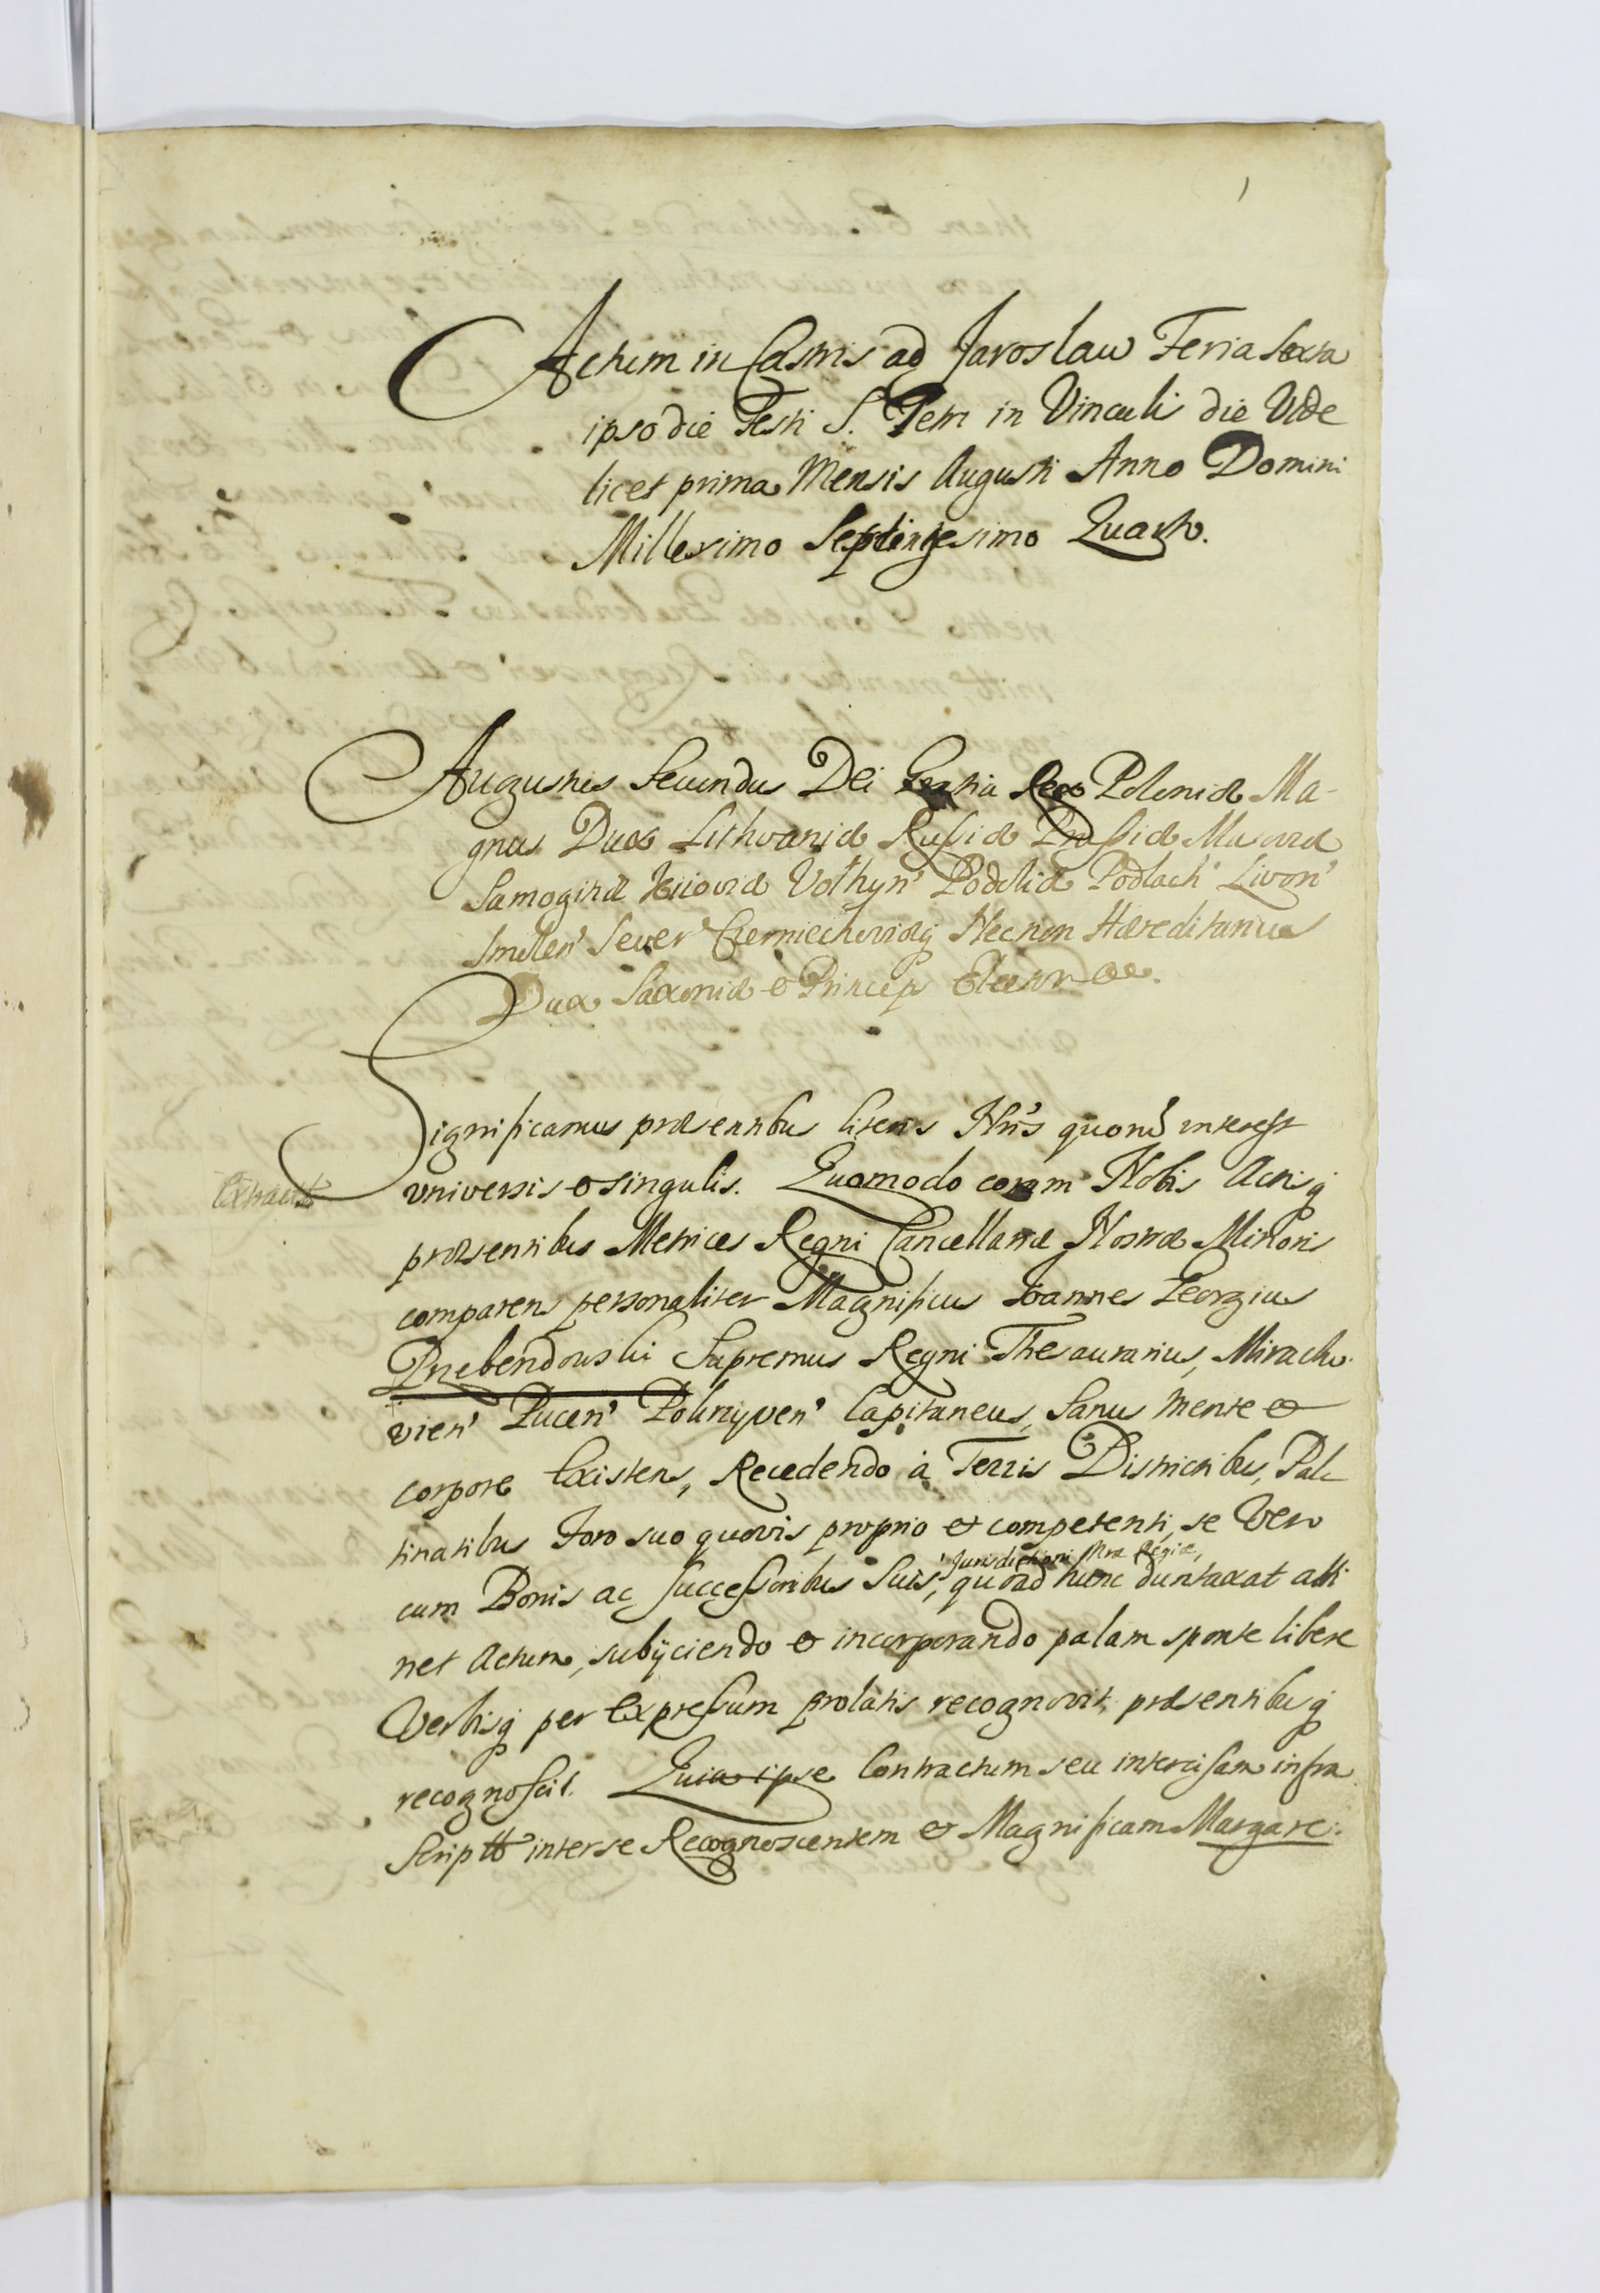 Actum in Castris ad Jaroslaw Feria Sexta
ipso die Festi S. Petri in Vinculi die Vide
licet prima Mensis Augusti Anno Domini
Millesimo Septingesimo Quarto.
Augustus Secundus Dei Gratia Rex Poloniæ Ma-
gnus Dux Lithvaniæ Russiæ Prussiæ Masoviæ
Samogitiæ Kijoviæ Volhyn' Podoliæ Podlach' Livon'
Smolen' Sever' Czerniechoviæq Necnon Hæreditarius
Dux Saxoniæ & Princeps Elector &c.
Significamus præsentibus literis Nris quorũ interest
universis & singulis. Quomodo coram Nobis Actisq
præsentibus Metrices Regni Cancellariæ Nostræ Minoris
comparens personaliter Magnificus Joannes Georgius
Przebendowski Supremus Regni Thesaurarius, Miracho
vien' Pucen' Tolmyven' Capitaneus, Sanus mente &
corpore Existens, Recedendo à Terris Districtibus, Pala
tinatibus Foro suo quovis proprio et competenti, se Vero
Jurisdictioni Nræ Regiæ,
cum Bonis ac successoribus suis, quoad hunc duntaxat atti
net Actum, subijciendo & incorporando palam sponte libere
Verbisq per Expressum prolatis recognovit, præsentibusq
recognoscit. Quia ipse Contractum seu intercisam infra
Script inter se Recognoscentem & Magnificam Margare
Extract